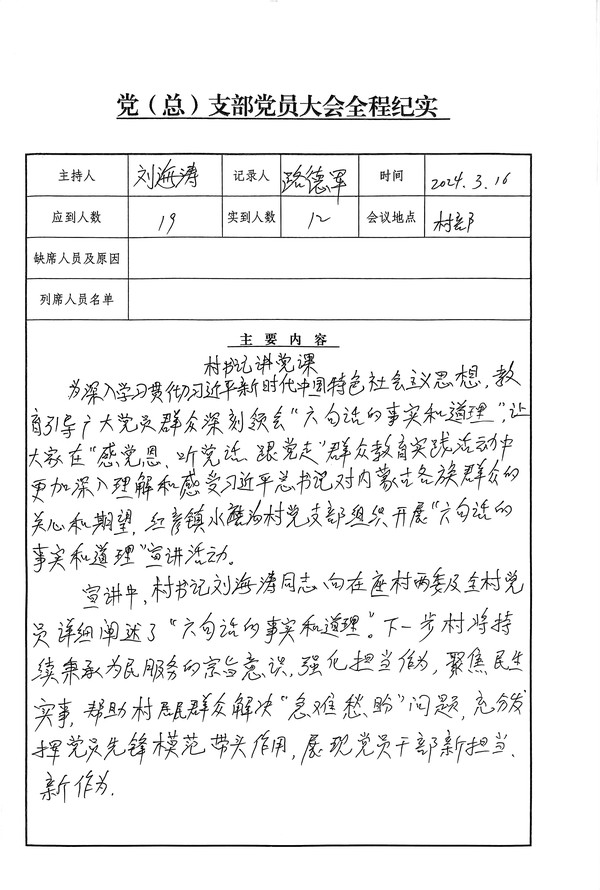 党（总）支部党员大会全程纪实
主持人 刘海涛 记录人 路德军 时间 2024.3.16
应到人数 19 实到人数 12 会议地点 村部
缺席人员及原因
列席人员名单
主要内容
村书记讲党课
为深入学习贯彻习近平新时代中国特色社会主义思想，教
育引导广大党员群众深刻领会“六句话的事实和道理”，让
大家在“感党恩、听党话、跟党走”群众教育实践活动中
更加深入理解和感受习近平总书记对内蒙古各族群众的
关心和期望，红彦镇水沟村党支部组织开展“六句话的
事实和道理”宣讲活动。
宣讲中，村书记刘海涛同志向在座村两委及全村党
员详细阐述了“六句话的事实和道理”。下一步村将持
续秉承为民服务的宗旨意识，强化担当作为，聚焦民生
实事，帮助村居民群众解决“急难愁盼”问题，充分发
挥党员先锋模范带头作用，展现党员干部新担当、
新作为.